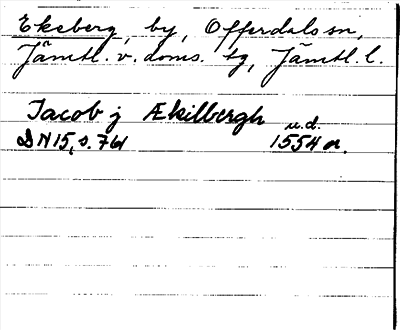 Ekeberg, by, Offerdals sn,
Jämtl. v. doms. tg, Jämtl. l.
Jacob j Ækilbergh u.d.
DN15, s. 761 1554 a.